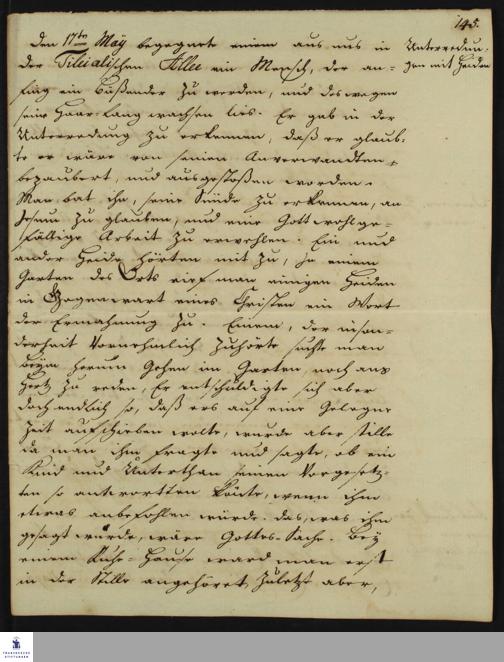 145.
Den 17ten May begegnete einem aus uns in
der Tileialischen Allee ein Mensch, der an-
fing ein Büßender zu werden, und deswegen
sein Haar lang wachsen lies. Er gab in der
Unterredung zu erkennen, daß er glaub-
te er wäre von seinen Anverwandten
bezaubert, und ausgestoßen worden.
Man bat ihn, seine Sünde zu erkennen, an
Jesum zu glauben, und eine Gott wohlge-
fällige Arbeit zu erwehlen. Ein und
ander Heide hörten mit zu, in einem
Garten des Orts rief man einigen Heiden
in Gegenwart eines Christen ein Wort
der Ermahnung zu. Einem, der inson-
derheit vornehmlich zuhörte suchte man
beym herum Gehen im Garten, noch ans
Hertz zu reden. Er entschuldigte sich aber
doch endlich so, daß ers auf eine Gelegne
Zeit aufschieben wolte, wurde aber stille
da man ihn fragte und sagte, ob ein
Kind und Unterthan seinen Vorgesetz-
ten so antworten könte, wenn ihm
etwas anbefohlen würde. das, was ihm
gesagt würde, wäre Gottes-Sache. Bey
einem Ruhe-Hause ward man erst
in der Stille angehöret, zuletzt aber,
Unterredun-
gen mit Heiden
FRANCKESCHE
STIFTUNGEN